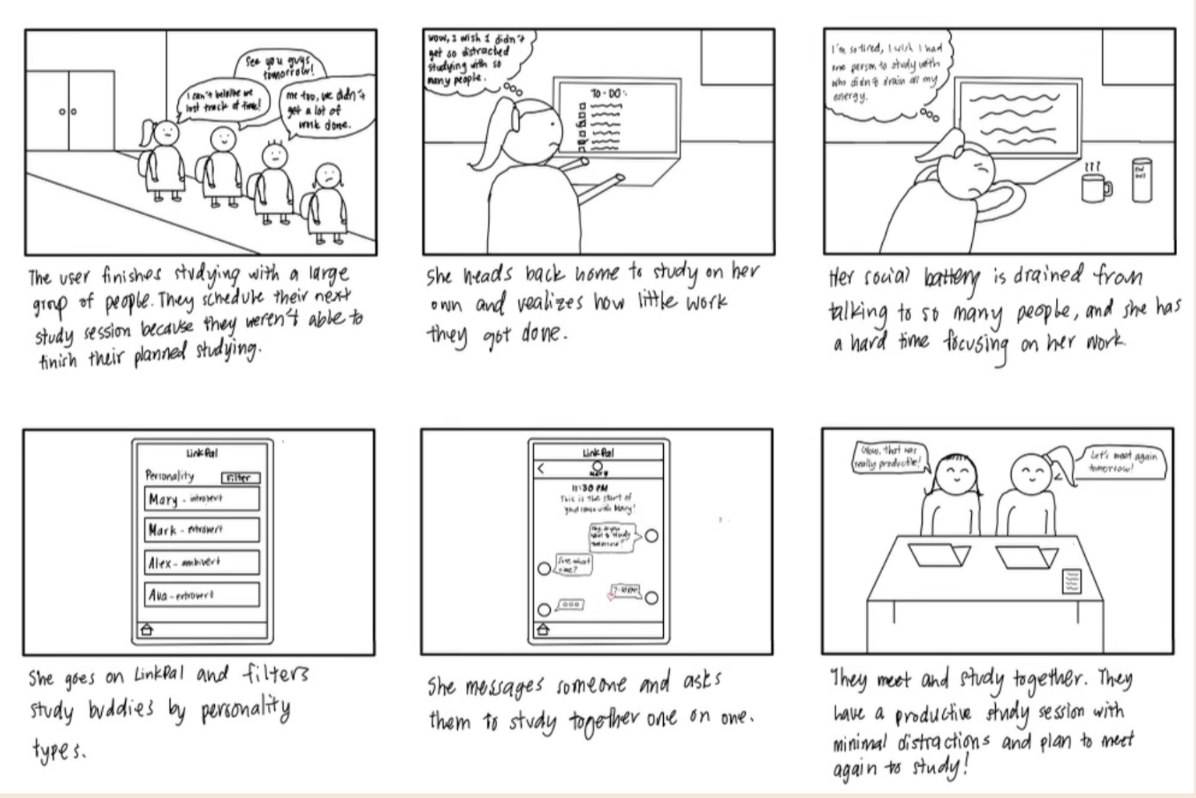 See you guys
tomorrow!
I can't believe we
lost track of time!
me too, we didn't
get a lot of
work done.
The user finishes studying with a large
group of people. They schedule their next
study session because they weren't able to
finish their planned studying.
wow, I wish I didn't
get so distracted
studying with so
many people.
TO-DO:
She heads back home to study on her
own and realizes how little work
they got done.
I'm so tired, I wish I had
one person to study with
who didn't drain all my
energy.
Her social battery is drained from
talking to so many people, and she has
a hard time focusing on her work.
LinkPal
Personality Filter
Mary - introvert
Mark - extrovert
Alex - ambivert
Ava - extrovert
She goes on LinkPal and filters
study buddies by personality
types.
LinkPal
<
11:30 PM
This is the start of
your convo with Mary!
to study
tomorrow?
Sure what
time?
She messages someone and asks
them to study together one on one.
Wow, that was
really productive!
Let's meet again
tomorrow!
They meet and study together. They
have a productive study session with
minimal distractions and plan to meet
again to study!